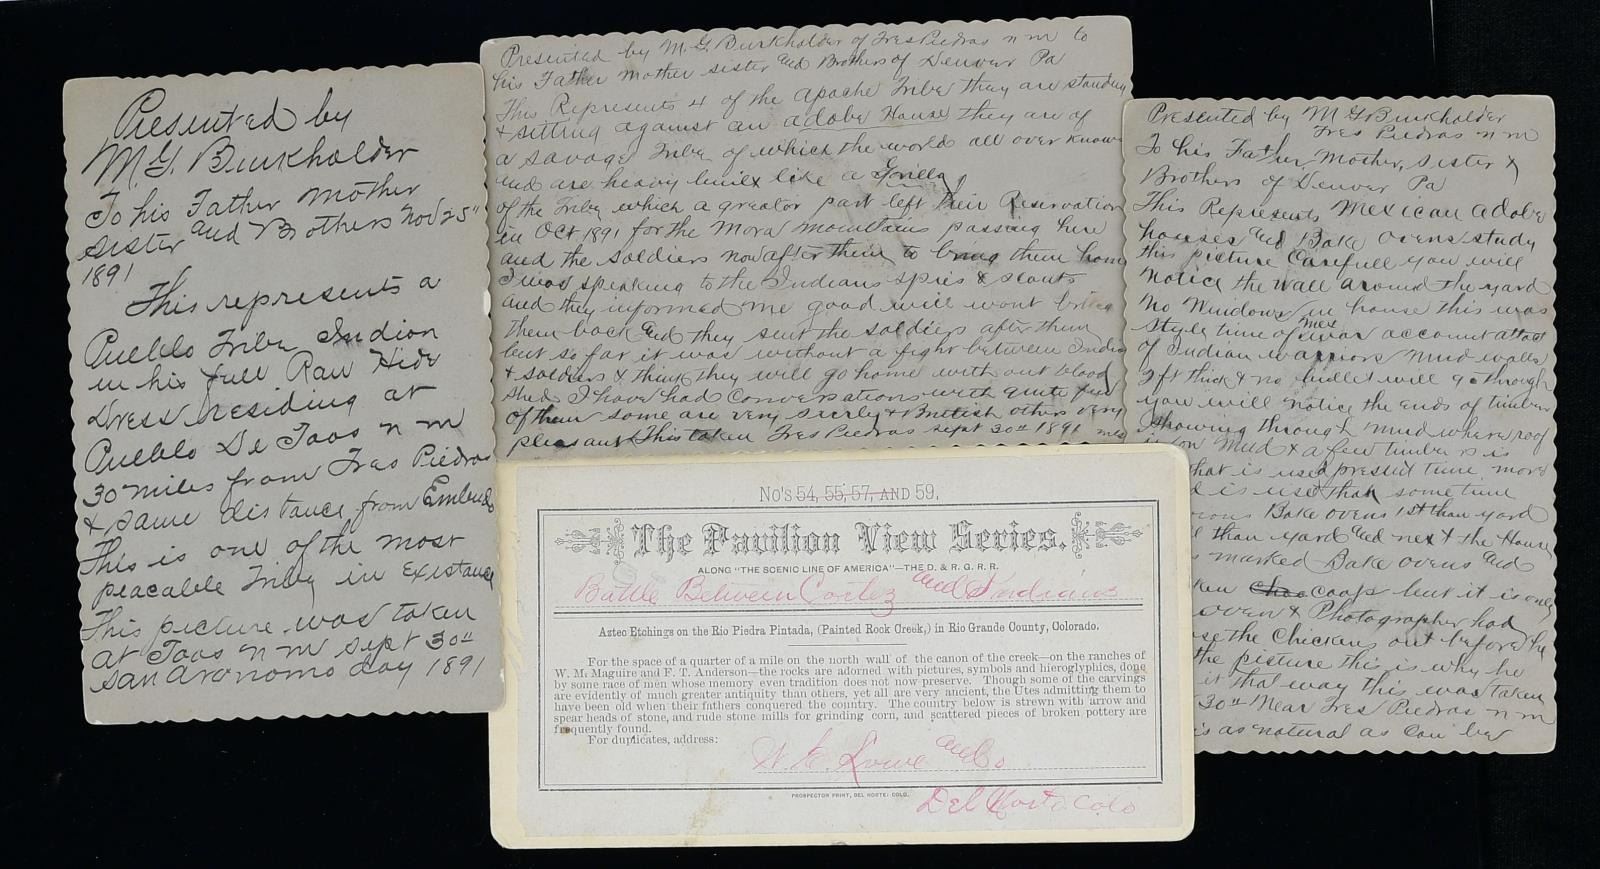 Presented by
M. G. Burkholder
To his Father Mother
Sister and Brothers Nov 25"
1891
This represents a
Pueblo Tribe Indian
in his full Raw Hide
Dress residing at
Pueblo De Taos n m
30 miles from Tres Piedras
& same distance from Embudo
This is one of the most
peacable Tribe in Existance
This picture was taken
at Taos n m Sept 30th
San Aronomo day 1891
Presented by M. G. Burkholder of Tres Piedras n m to
his Father Mother Sister and Brothers of Denver Pa
This Represents 4 of the Apache Tribe they are standing
& sitting against an adobe House they are of
a savage Tribe of which the world all over known
and are heavy built like a Gorilla
of the Tribe which a greator part left their Reservation
in Oct 1891 for the Mora Mountains passing here
and the soldiers now after them to bring them home
I was speaking to the Indians spies & scouts
and they informed me good will wont bring
them back and they sent the soldiers after them
but so far it was without a fight between Indi
& soldiers & think they will go home with out blood
shed I have had Conversations with quite few
of them some are very surly & Brutish others very
pleasant This taken Tres Piedras Sept 30th 1891
Presented by M G Burkholder
Tres Piedras n m
To his Father, Mother, Sister &
Brothers of Denver Pa
This Represents Mexican adobe
houses and Bake ovens study
this picture Carefull you will
notice the wall around the yard
No Windows in house this was
style time of Mex war account attact
of Indian warriors Mud walls
2 ft thick & no bullet will go through
you will notice the ends of timber
showing through Mud where roof
Mud & a few timbers is
that is used present time more
is used than sometime
Bake ovens 1st than yard
than yard and next the House
marked Bake ovens and
coops but it is only
oven & Photographer had
the Chickens out before he
the picture this is why he
it that way this was taken
30th Near Tres Piedras n m
is as natural as Can be
No's 54, 55, 57, AND 59.
The Pavilion View Series.
ALONG "THE SCENIC LINE OF AMERICA"—THE D. & R. G. R. R.
Battle Between Cortez and Indians
Aztec Etchings on the Rio Piedra Pintada, (Painted Rock Creek,) in Rio Grande County, Colorado.
For the space of a quarter of a mile on the north wall of the canon of the creek—on the ranches of
W. M. Maguire and F. T. Anderson—the rocks are adorned with pictures, symbols and hieroglyphics, done
by some race of men whose memory even tradition does not now preserve. Though some of the carvings
are evidently of much greater antiquity than others, yet all are very ancient, the Utes admitting them to
have been old when their fathers conquered the country. The country below is strewn with arrow and
spear heads of stone, and rude stone mills for grinding corn, and scattered pieces of broken pottery are
frequently found.
For duplicates, address:
and Co
PROSPECTOR PRINT, DEL NORTE: COLO.
Del Norte Colo